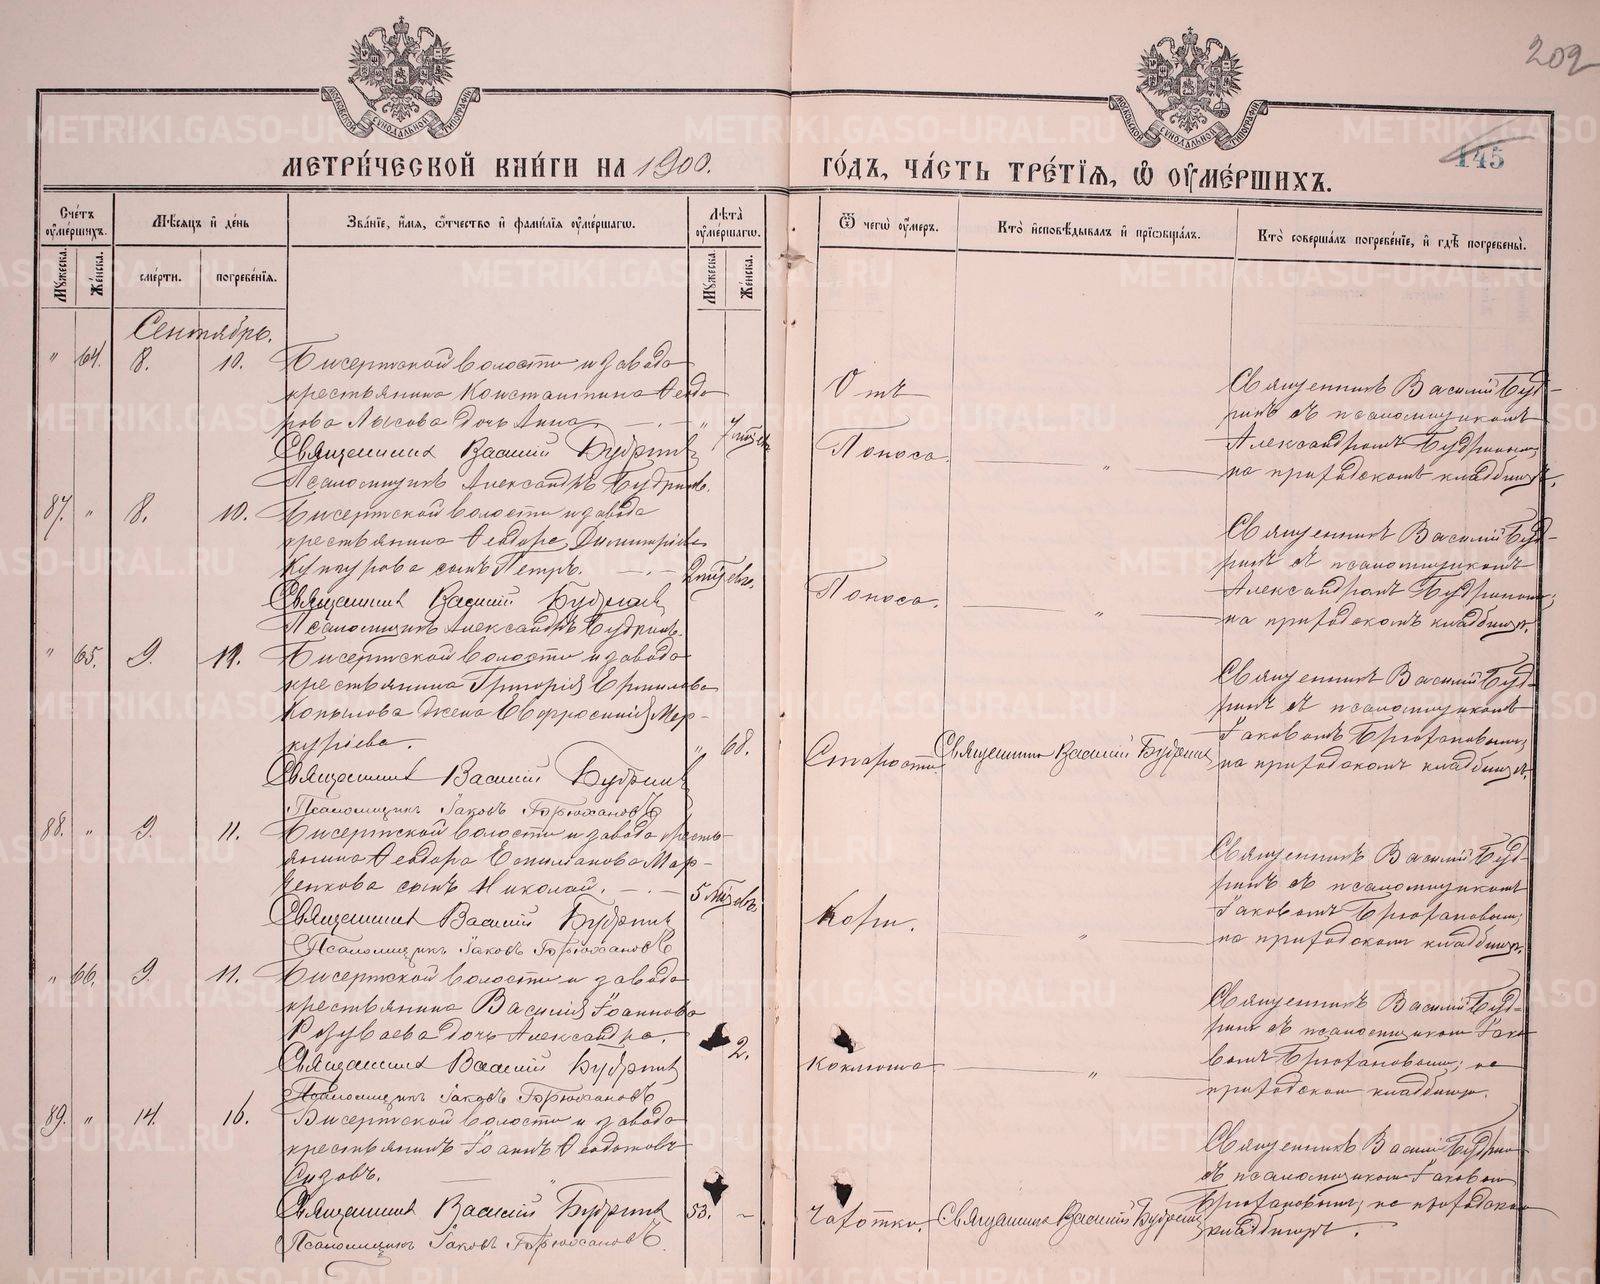 202
145
МОСКОВСКОЙ СУНОДАЛЬНОЙ ТИПОГРАФІИ
МОСКОВСКОЙ СУНОДАЛЬНОЙ ТИПОГРАФІИ
МЕТРИ́ЧЕСКОЙ КНИ́ГИ НА 1900.
ГО́ДЪ, ЧА́СТЬ ТРЕ́ТІѦ, Ѡ҆ ОУ҆МЕ́РШИХЪ.
Сче́тъ оу҆ме́ршихъ.
Мѣ́сяцъ и҆ де́нь
Зва́ніе, и҆́мя, ѻ҆́тчество и҆ фами́лія оу҆ме́ршагѡ.
Лѣ́та оу҆ме́ршагѡ.
Ѿ чегѡ̀ оу҆́меръ.
Кто̀ и҆сповѣ́дывалъ и҆ прїѡбща́лъ.
Кто̀ соверша́лъ погребе́ніе, и҆ гдѣ̀ погребены̀.
Му́жеска.
Же́нска.
сме́рти.
погребе́нія.
Му́жеска.
Же́нска.
Сентябрь.
" 64. 8. 10. Бисертской волости и завода
крестьянина Константина Ѳеодо
рова Лысова дочь Анна. " 7 мцевъ
Священникъ Василій Будринъ
Псаломщикъ Александръ Будринъ.
Отъ
Поноса. "
Священникъ Василій Буд-
ринъ съ псаломщикомъ
Александромъ Будринымъ;
на приходскомъ кладбищѣ.
87. " 8. 10. Бисертской волости и завода
крестьянина Ѳеодора Димитріева
сынъ Петръ. 2 мцевъ.
Священникъ Василій Будринъ
Псаломщикъ Александръ Будринъ.
Поноса. "
Священникъ Василій Буд-
ринъ съ псаломщикомъ
Александромъ Будринымъ;
на приходскомъ кладбищѣ.
" 65. 9. 11. Бисертской волости и завода
крестьянина Григорія Ермилова
Копылова жена Евфросинія Мер-
куріева. " 68.
Священникъ Василій Будринъ
Псаломщикъ Іаковъ Брюхановъ
Старости Священникъ Василій Будринъ
Священникъ Василій Буд-
ринъ съ псаломщикомъ
Іаковомъ Брюхановымъ;
на приходскомъ кладбищѣ.
88. " 9. 11. Бисертской волости и завода кресть-
янина Ѳеодора Мар-
ченкова сынъ Николай. 5 мцевъ
Священникъ Василій Будринъ
Псаломщикъ Іаковъ Брюхановъ
Кори. "
Священникъ Василій Буд-
ринъ съ псаломщикомъ
Іаковомъ Брюхановымъ;
на приходскомъ кладбищѣ.
" 66. 9. 11. Бисертской волости и завода
крестьянина Василія Іоаннова
Розуваева дочь Александра. 2.
Священникъ Василій Будринъ
Псаломщикъ Іаковъ Брюхановъ
Коклюша "
Священникъ Василій Буд-
ринъ съ псаломщикомъ Іако-
вомъ Брюхановымъ; на
приходскомъ кладбищѣ.
89. " 14. 16. Бисертской волости и завода
крестьянинъ Іоаннъ Ѳеодотовъ
Сизовъ.
Священникъ Василій Будринъ 53. -
Псаломщикъ Іаковъ Брюхановъ.
Чахотки. Священникъ Василій Будринъ
Священникъ Василій Будринъ
съ псаломщикомъ Іаковомъ
Брюхановымъ; на приходскомъ
кладбищѣ.
METRIKI.GASO-URAL.RU